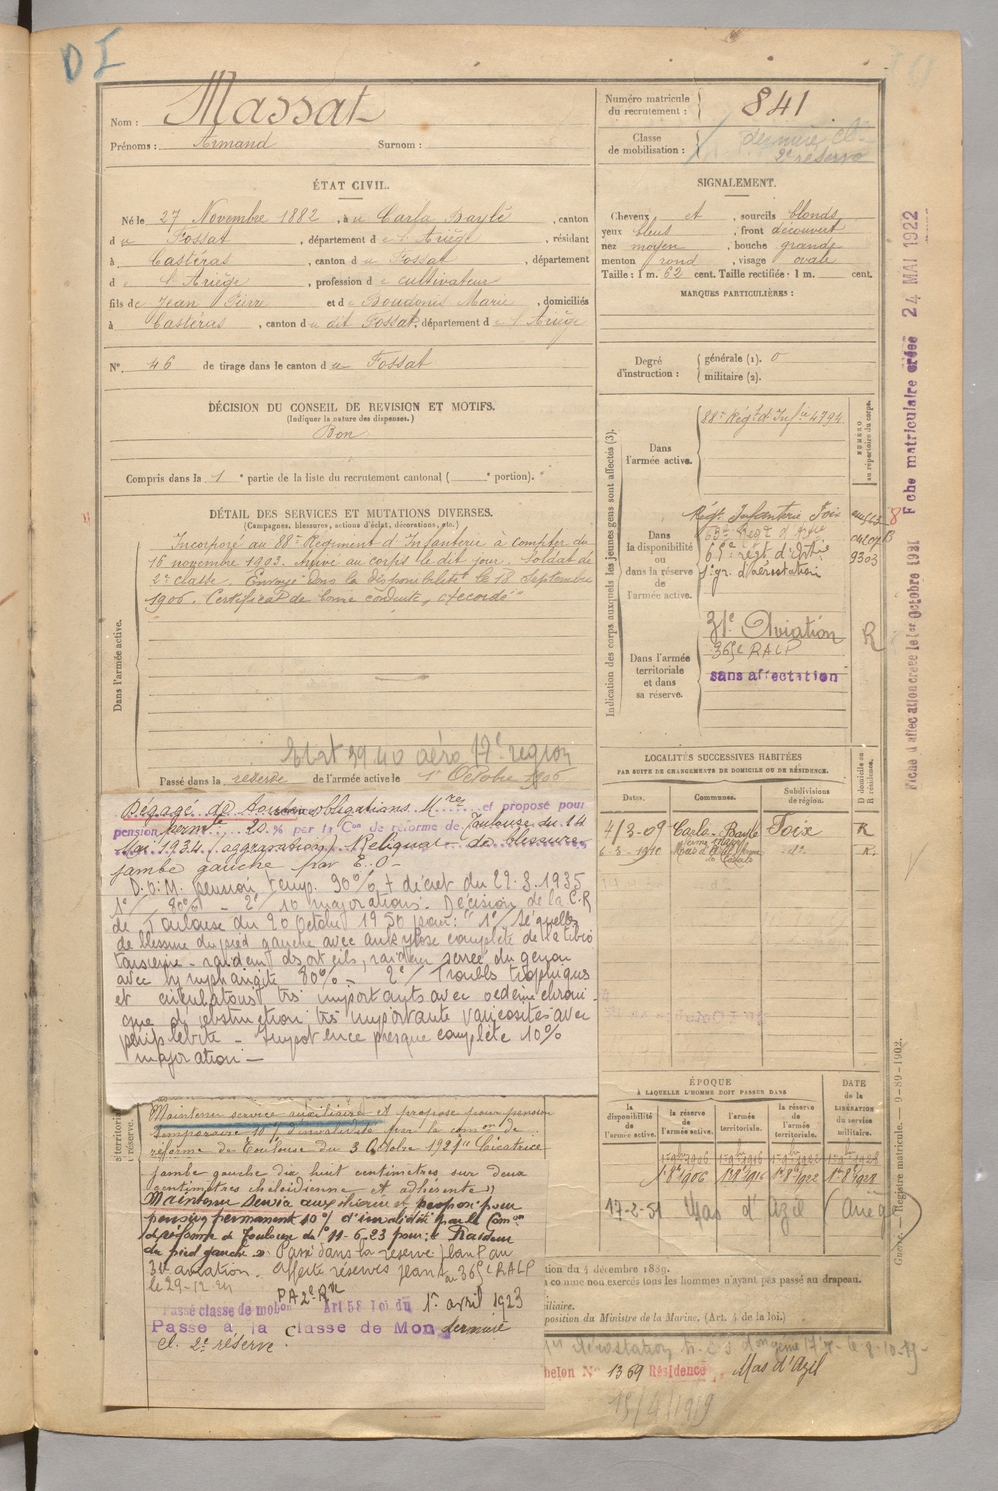 D I
Nom : Massat
Prénoms : Armand Surnom :
Numéro matricule du recrutement : 841
Classe de mobilisation : dernière cl.
2e réserve
ÉTAT CIVIL.
Né le 27 Novembre 1882, à u Carla Bayle, canton
d u Fossat, département d e l'Ariège, résidant
à Castéras, canton d u Fossat, département
d e l'Ariège, profession de cultivateur
fils de Jean Pierre et de Boudonis Marie, domiciliés
à Castéras, canton d u dit Fossat, département d e l'Ariège
N° 46 de tirage dans le canton d u Fossat
SIGNALEMENT.
Cheveux et, sourcils blonds
yeux bleus, front découvert
nez moyen, bouche grande
menton rond, visage ovale
Taille : 1 m. 62 cent. Taille rectifiée : 1 m. cent.
MARQUES PARTICULIÈRES :
Degré d'instruction : générale (1). 0
militaire (2).
DÉCISION DU CONSEIL DE REVISION ET MOTIFS.
(Indiquer la nature des dispenses.)
Bon
Compris dans la 1e partie de la liste du recrutement cantonal ( e portion).
DÉTAIL DES SERVICES ET MUTATIONS DIVERSES.
(Campagnes, blessures, actions d'éclat, décorations, etc.)
Dans l'armée active.
Incorporé au 88e Régiment d'Infanterie à compter du
16 novembre 1903. Arrivé au corps le dit jour. Soldat de
2e classe. Envoyé dans la disponibilité le 18 Septembre
1906. Certificat de bonne conduite "Accordé"
Passé dans la réserve de l'armée active le 1er Octobre 1906
Indication des corps auxquels les jeunes gens sont affectés (3).
NUMÉRO au répertoire du corps.
Dans l'armée active.
88e Régt d'Infie 4794
Dans la disponibilité ou dans la réserve de l'armée active.
Régt Infanterie Foix
65e régt d'Inftrie 9303
1er gr. d'aérostation
Dans l'armée territoriale et dans sa réserve.
31e Aviation R
365e RALP
sans affectation
LOCALITÉS SUCCESSIVES HABITÉES
PAR SUITE DE CHANGEMENTS DE DOMICILE OU DE RÉSIDENCE.
Dates. Communes. Subdivisions de région. D domicile ou R résidence.
4/3-09 Carla-Bayle Foix R
6-3-1910 Mas d'Azil R
Dégagé de toutes obligations Mres et proposé pour
pension permte 20 % par la Con de réforme de Toulouse du 14
Mai 1934 (aggravation) Reliquat de blessure
jambe gauche par E. O.
D.O.M. pension temp. 90% + décret du 29.3.1935
1°/ 80% - 2°/ 10 majorations. Décision de la C.R
de Toulouse du 20 Octobre 1950 pour : "1°/ Séquelles
de blessure du pied gauche avec ankylose complète de la tibio
tarsienne - raideur des orteils, raideur serrée du genou
avec lymphangite 80% - 2°/ Troubles trophiques
et circulatoires très importants avec oedème chroni-
que d'obstruction très importante varicosités avec
périphlébite - Impotence presque complète 10%
majoration -
Maintenu service auxiliaire et proposé pour pension
temporaire 10 % d'invalidité par la comon de
réforme de Toulouse du 3 Octobre 1921 "Cicatrice
jambe gauche dix huit centimètres sur deux
centimètres chéloïdienne et adhérente"
Maintenu service auxiliaire et proposé pour
pension permanente 10 % d'invalidité par la Comon
de réforme de Toulouse du 11-6-23 pour : "Raideur
du pied gauche". Passé dans la réserve plan P au
31e aviation. Affecté réserves plan A au 365e RALP
le 29-12-24
PA2e Rn
Passé classe de mobon Art 58 loi du 1er avril 1923
Passé à la Classe de Mon dernière
cl. 2e réserve.
ÉPOQUE
À LAQUELLE L'HOMME DOIT PASSER DANS
la disponibilité de l'armée active. la réserve de l'armée active. l'armée territoriale. la réserve de l'armée territoriale.
DATE de la LIBÉRATION du service militaire.
17-2-51 Mas d'Azil (Ariège)
tion du 4 décembre 1889.
à comme non exercés tous les hommes n'ayant pas passé au drapeau.
iliaire.
position du Ministre de la Marine. (Art. 4 de la loi.)
helon N° 1369 Résidence Mas d'Azil
15/4/1919
Fiche d'affectation créée le 1er Octobre 1931 Fiche matriculaire créée 24 MAI 1922
Guerre. — Registre matricule. — 9-89-1902.